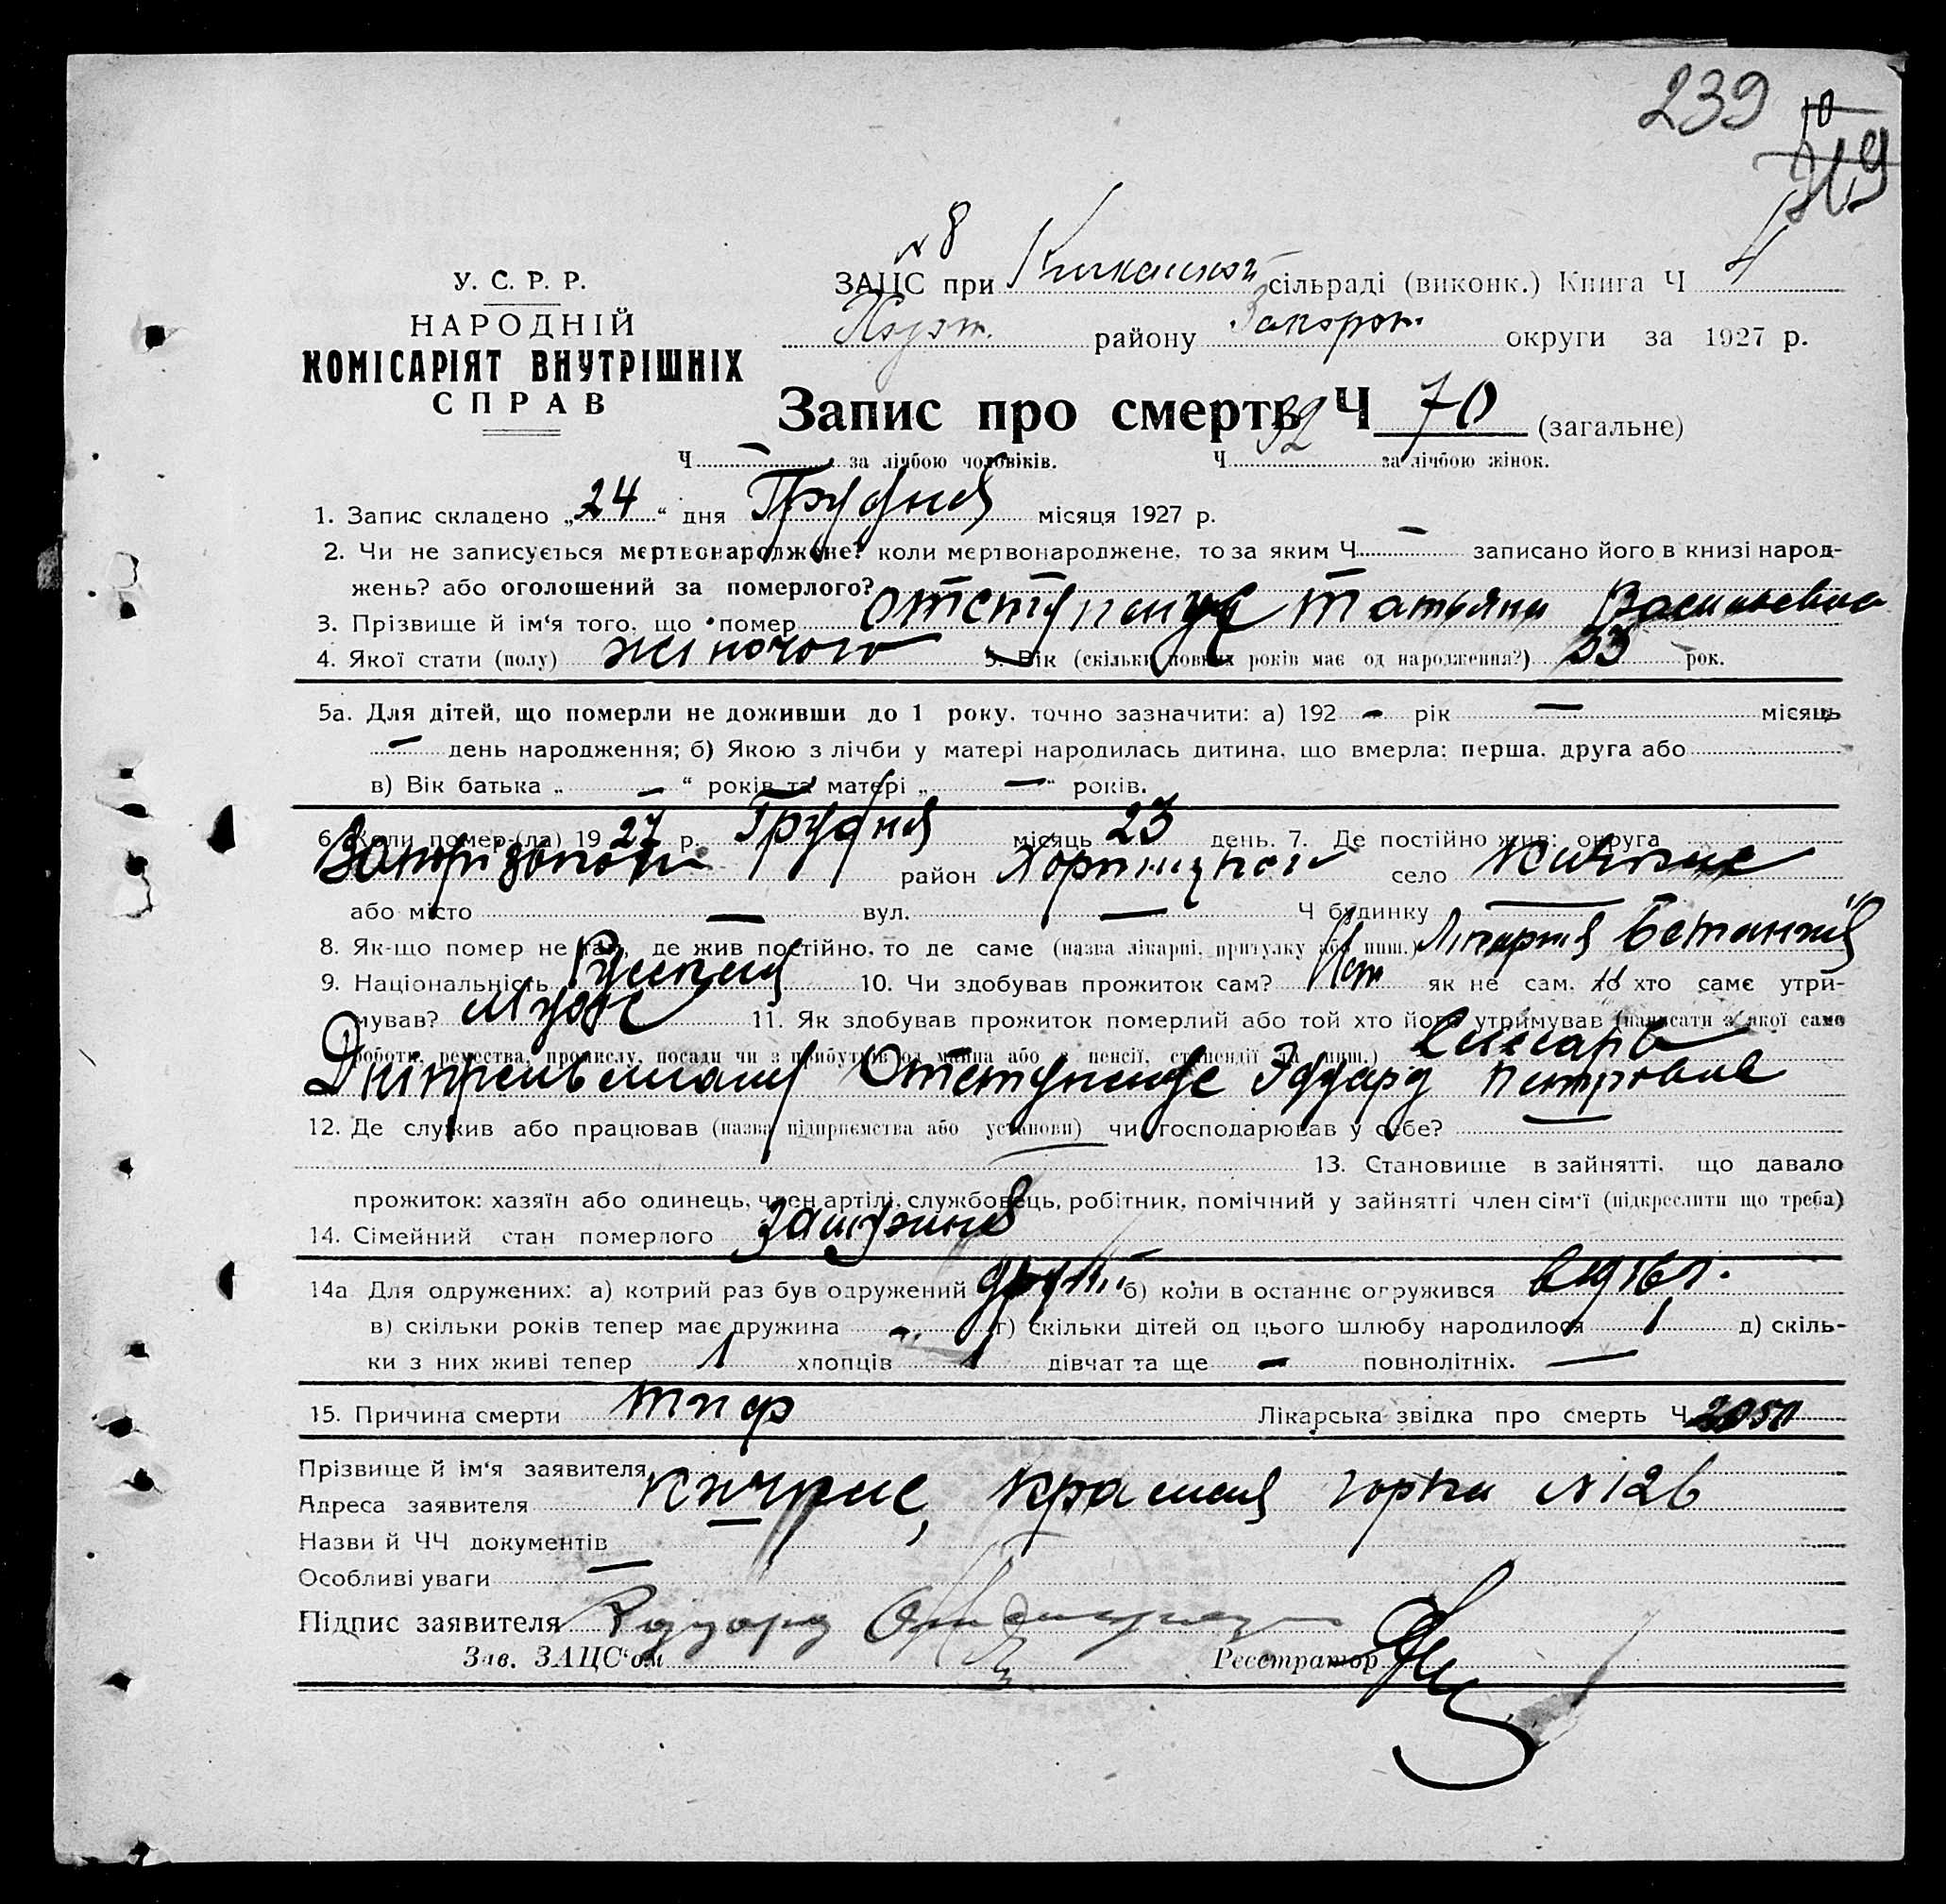 239
10
№ 8
У. С. Р. Р.
НАРОДНІЙ
КОМІСАРІЯТ ВНУТРІШНІХ
СПРАВ
ЗАЦС при сільраді (виконк.) Книга Ч
району Запорож. округи за 1927 р.
Запис про смерть Ч 70 (загальне)
Ч — за лічбою чоловіків. Ч 32 за лічбою жінок.
1. Запис складено „24“ дня Грудня місяця 1927 р.
2. Чи не записується мертвонароджене? коли мертвонароджене, то за яким Ч — записано його в книзі народ-
жень? або оголошений за померлого?
3. Прізвище й ім'я того, що помер Татьяна Васильевна
4. Якої стати (полу) жіночого 5. Вік (скільки повних років має од народження?) 33 рок.
5а. Для дітей, що померли не доживши до 1 року, точно зазначити: а) 192 — рік — місяць
— день народження; б) Якою з лічби у матері народилась дитина, що вмерла: перша, друга або
в) Вік батька „ — “ років та матері „ — “ років.
6. Коли помер (ла) 1927 р. Грудня місяць 23 день. 7. Де постійно жив: округа
район село Кичкас
або місто — вул. — Ч будинку —
8. Як-що помер не там, де жив постійно, то де саме (назва лікарні, притулку або инш.) Лікарня Бетанія
9. Національність 10. Чи здобував прожиток сам? Нет як не сам, то хто саме утри-
мував? Муж 11. Як здобував прожиток померлий або той хто його утримував (написати з якої само
роботи, ремества, промислу, посади чи з прибутків од майна або з пенсії, стипендії та инш.) Слесарь
Эдуард Петрович
12. Де служив або працював (назва підприємства або установи) чи господарював у себе? —
13. Становище в зайнятті, що давало
прожиток: хазяїн або одинець, член артілі, службовець, робітник, помічний у зайнятті член сім'ї (підкреслити що треба)
14. Сімейний стан померлого замужня
14а Для одружених: а) котрий раз був одружений б) коли в останнє одружився
в) скільки років тепер має дружина — г) скільки дітей од цього шлюбу народилося 1 д) скіль-
ки з них живі тепер 1 хлопців 1 дівчат та ще — повнолітніх. —
15. Причина смерти тиф Лікарська звідка про смерть Ч 2050
Прізвище й ім'я заявителя
Адреса заявителя Кичкас, Красная горка № 126
Назви й ЧЧ документів —
Особливі уваги —
Підпис заявителя Эдуард
Зав. ЗАЦС'ом Реєстратор